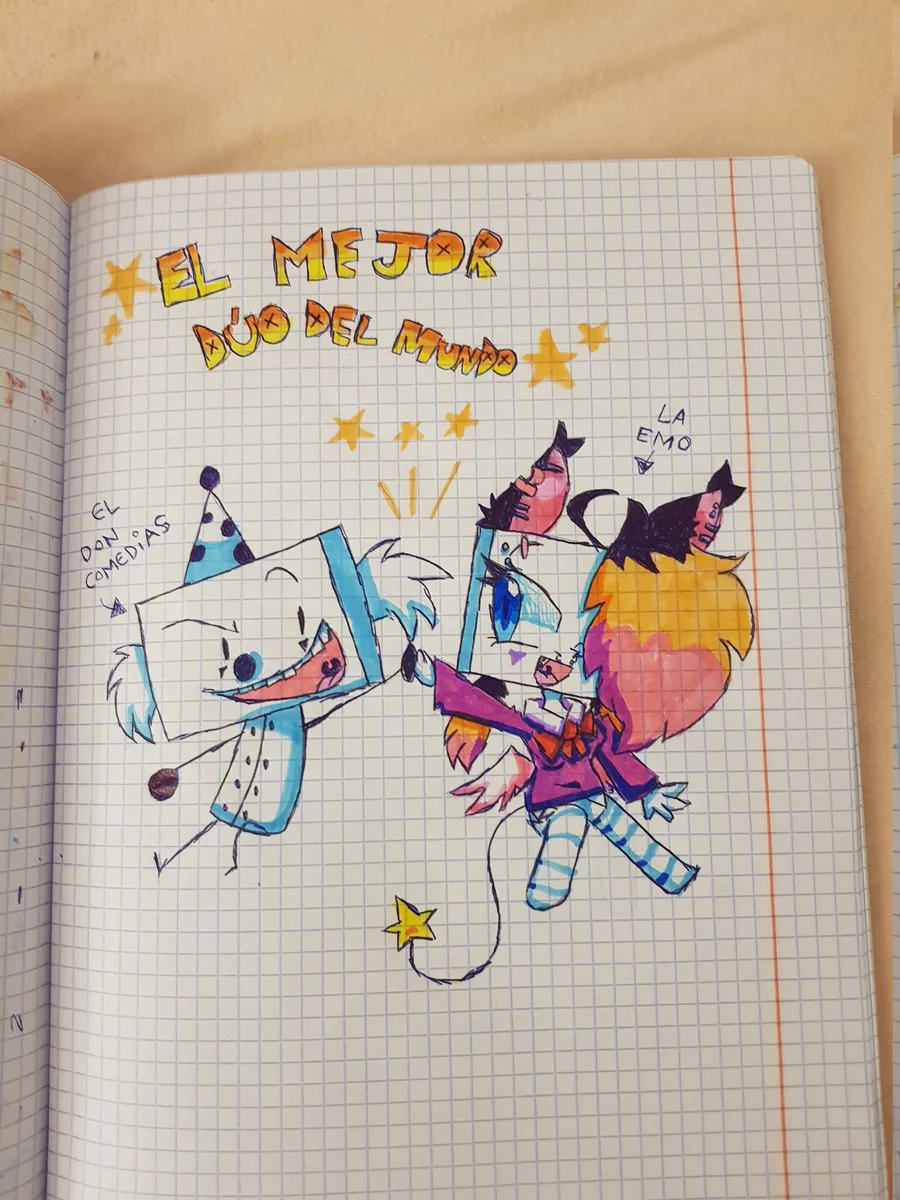 EL MEJOR
DÚO DEL MUNDO
LA
EMO
EL
DON
COMEDiAS